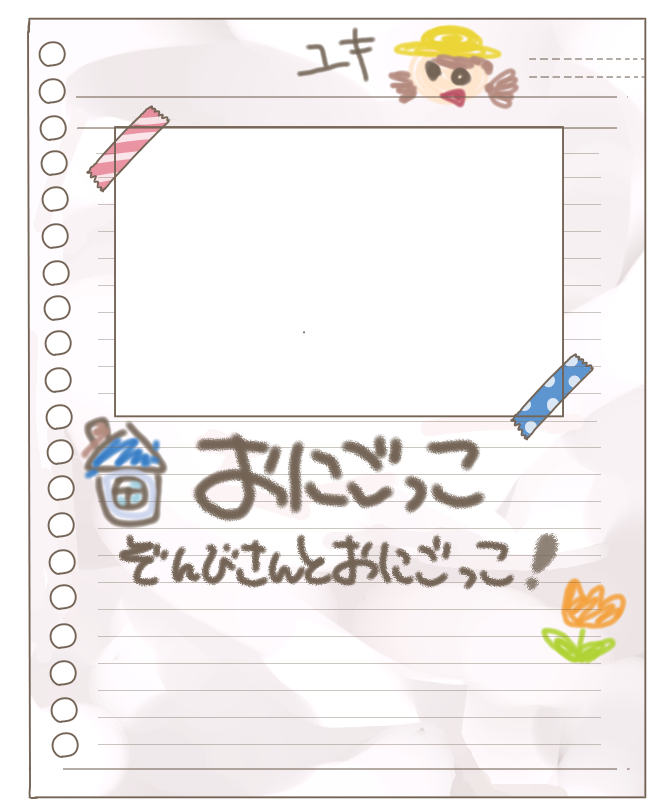 ユキ
おにごっこ
ぞんびさんとおにごっこ!